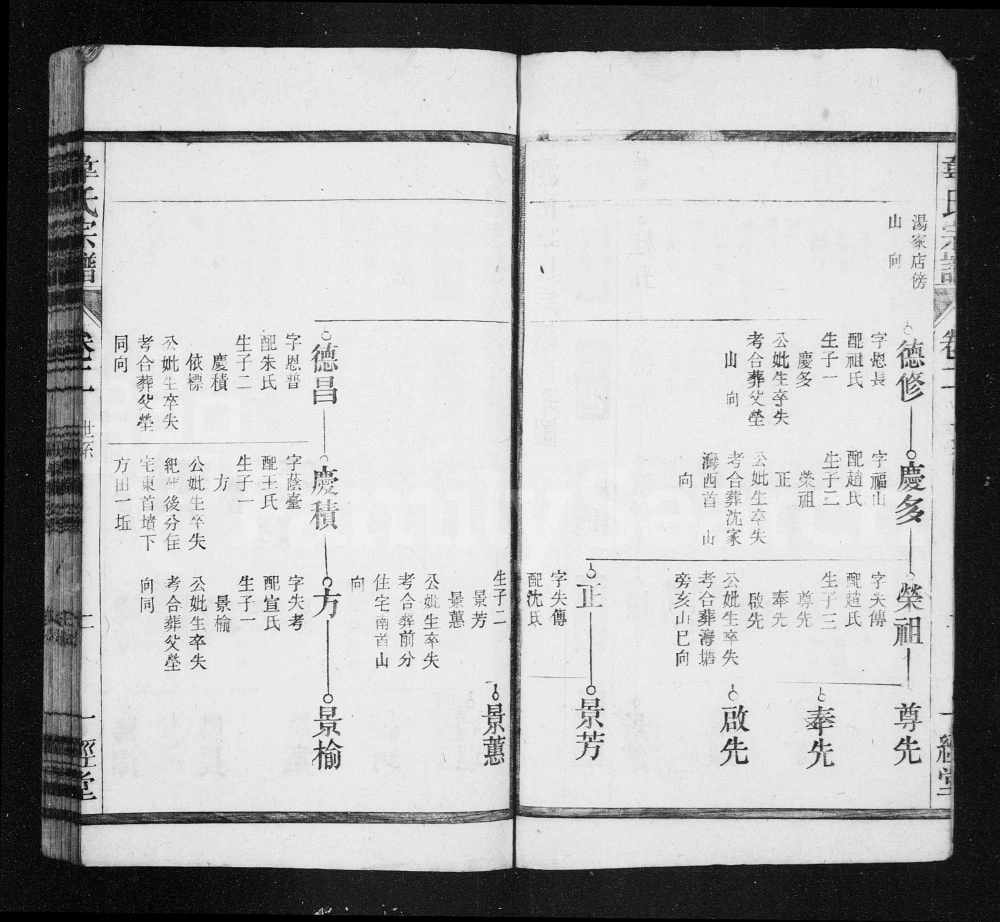 氏宗譜
卷二
一經堂
湯家店傍
山向
德修
字㤝長
配祖氏
生子一
慶多
公妣生卒失
考合葬父塋
山向
慶多
字福山
配趙氏
生子二
榮祖
正
公妣生卒失
考合葬沈家
灣西首山
向
榮祖
字失傳
配趙氏
生子三
尊先
奉先
啟先
公妣生卒失
考合葬灣塘
旁亥山巳向
尊先
奉先
啟先
正
字失傳
配沈氏
生子二
景芳
景蕙
公妣生卒失
考合葬前分
住宅南首山
向
景芳
景蕙
德昌
字恩普
配朱氏
生子二
慶積
依標
公妣生卒失
考合葬父塋
同向
慶積
字蔭臺
配王氏
生子一
方
公妣生卒失
紀後分住
宅東首墳下
方田一坵
方
字失考
配宣氏
生子一
景榆
公妣生卒失
考合葬父塋
向同
景榆
章氏宗譜
卷二
世系
一經堂